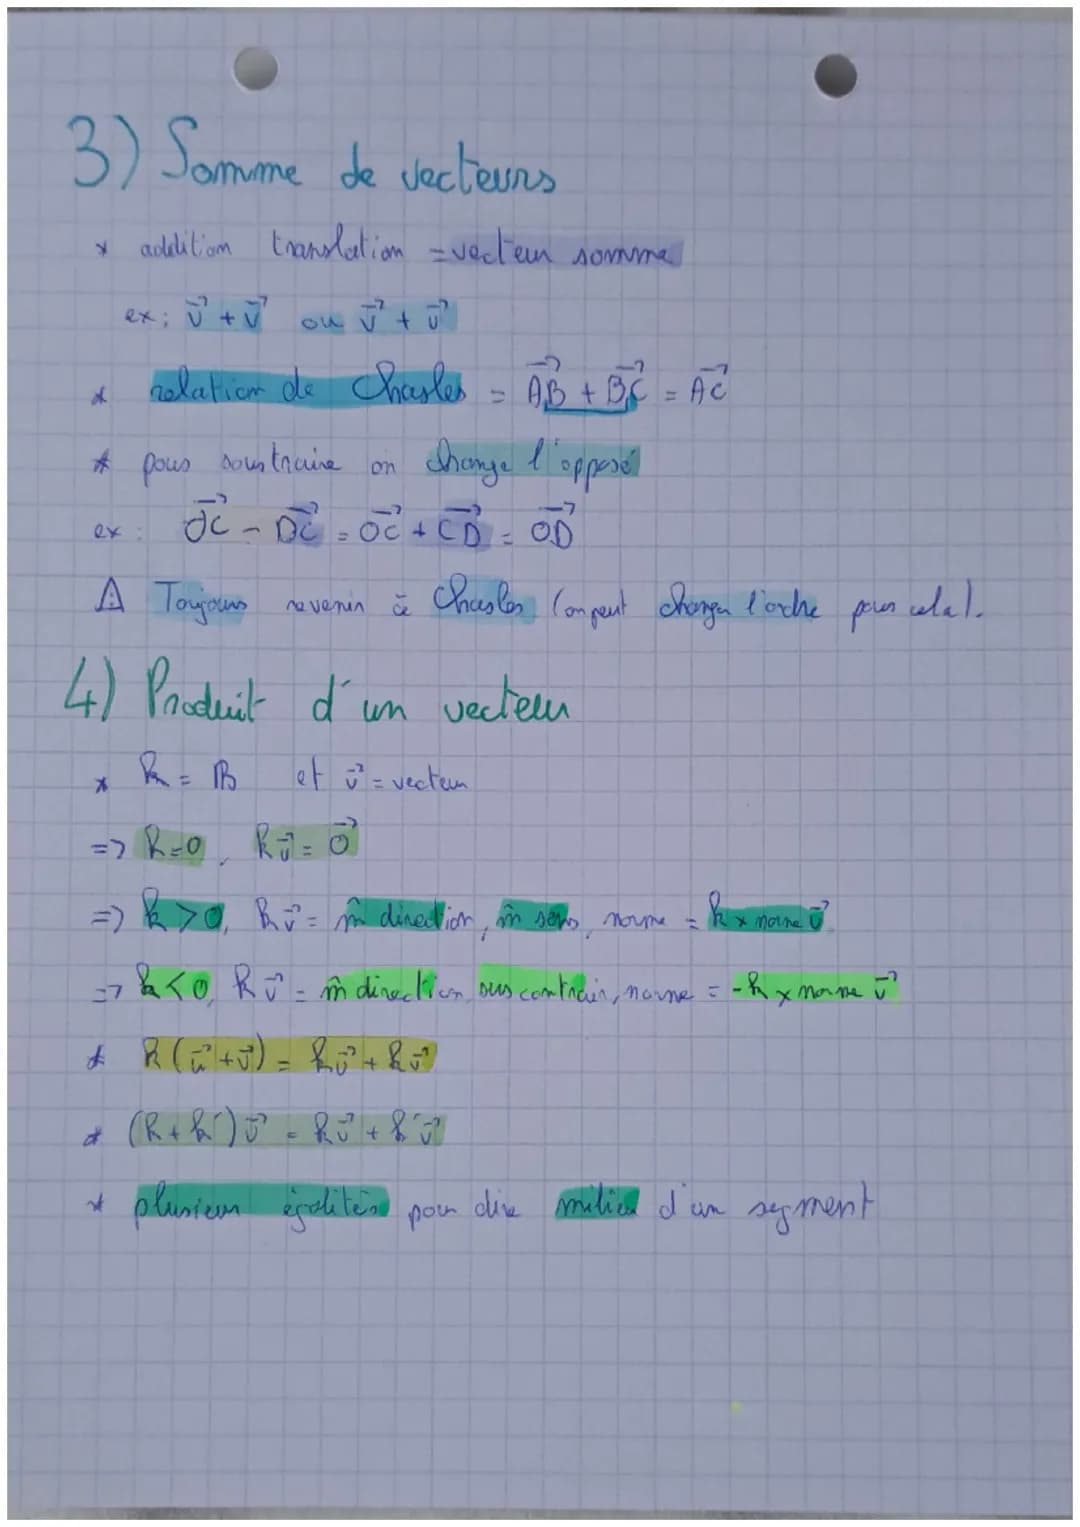 3) Somme de vecteurs
* addition translation = vecteur somme
ex: u⃗ + v⃗ ou v⃗ + u⃗
* relation de Chasles = AB⃗ + BC⃗ = AC⃗
* pour soustraire on change l'opposé
ex: OC⃗ - DC⃗ = OC⃗ + CD⃗ = OD⃗
⚠ Toujours revenir à Chasles (on peut changer l'ordre pour cela).
4) Produit d'un vecteur
* k = ℝ et u⃗ = vecteur
=> k=0, ku⃗ = 0⃗
=> k>0, ku⃗ = m̂ direction, m̂ sens, norme = k x norme u⃗
=> k<0, ku⃗ = m̂ direction, sens contrair, norme = -k x norme u⃗
* k(u⃗+v⃗) = ku⃗ + kv⃗
* (k+k')u⃗ = ku⃗ + k'u⃗
* plusieurs égalités pour dire milieu d'un segment